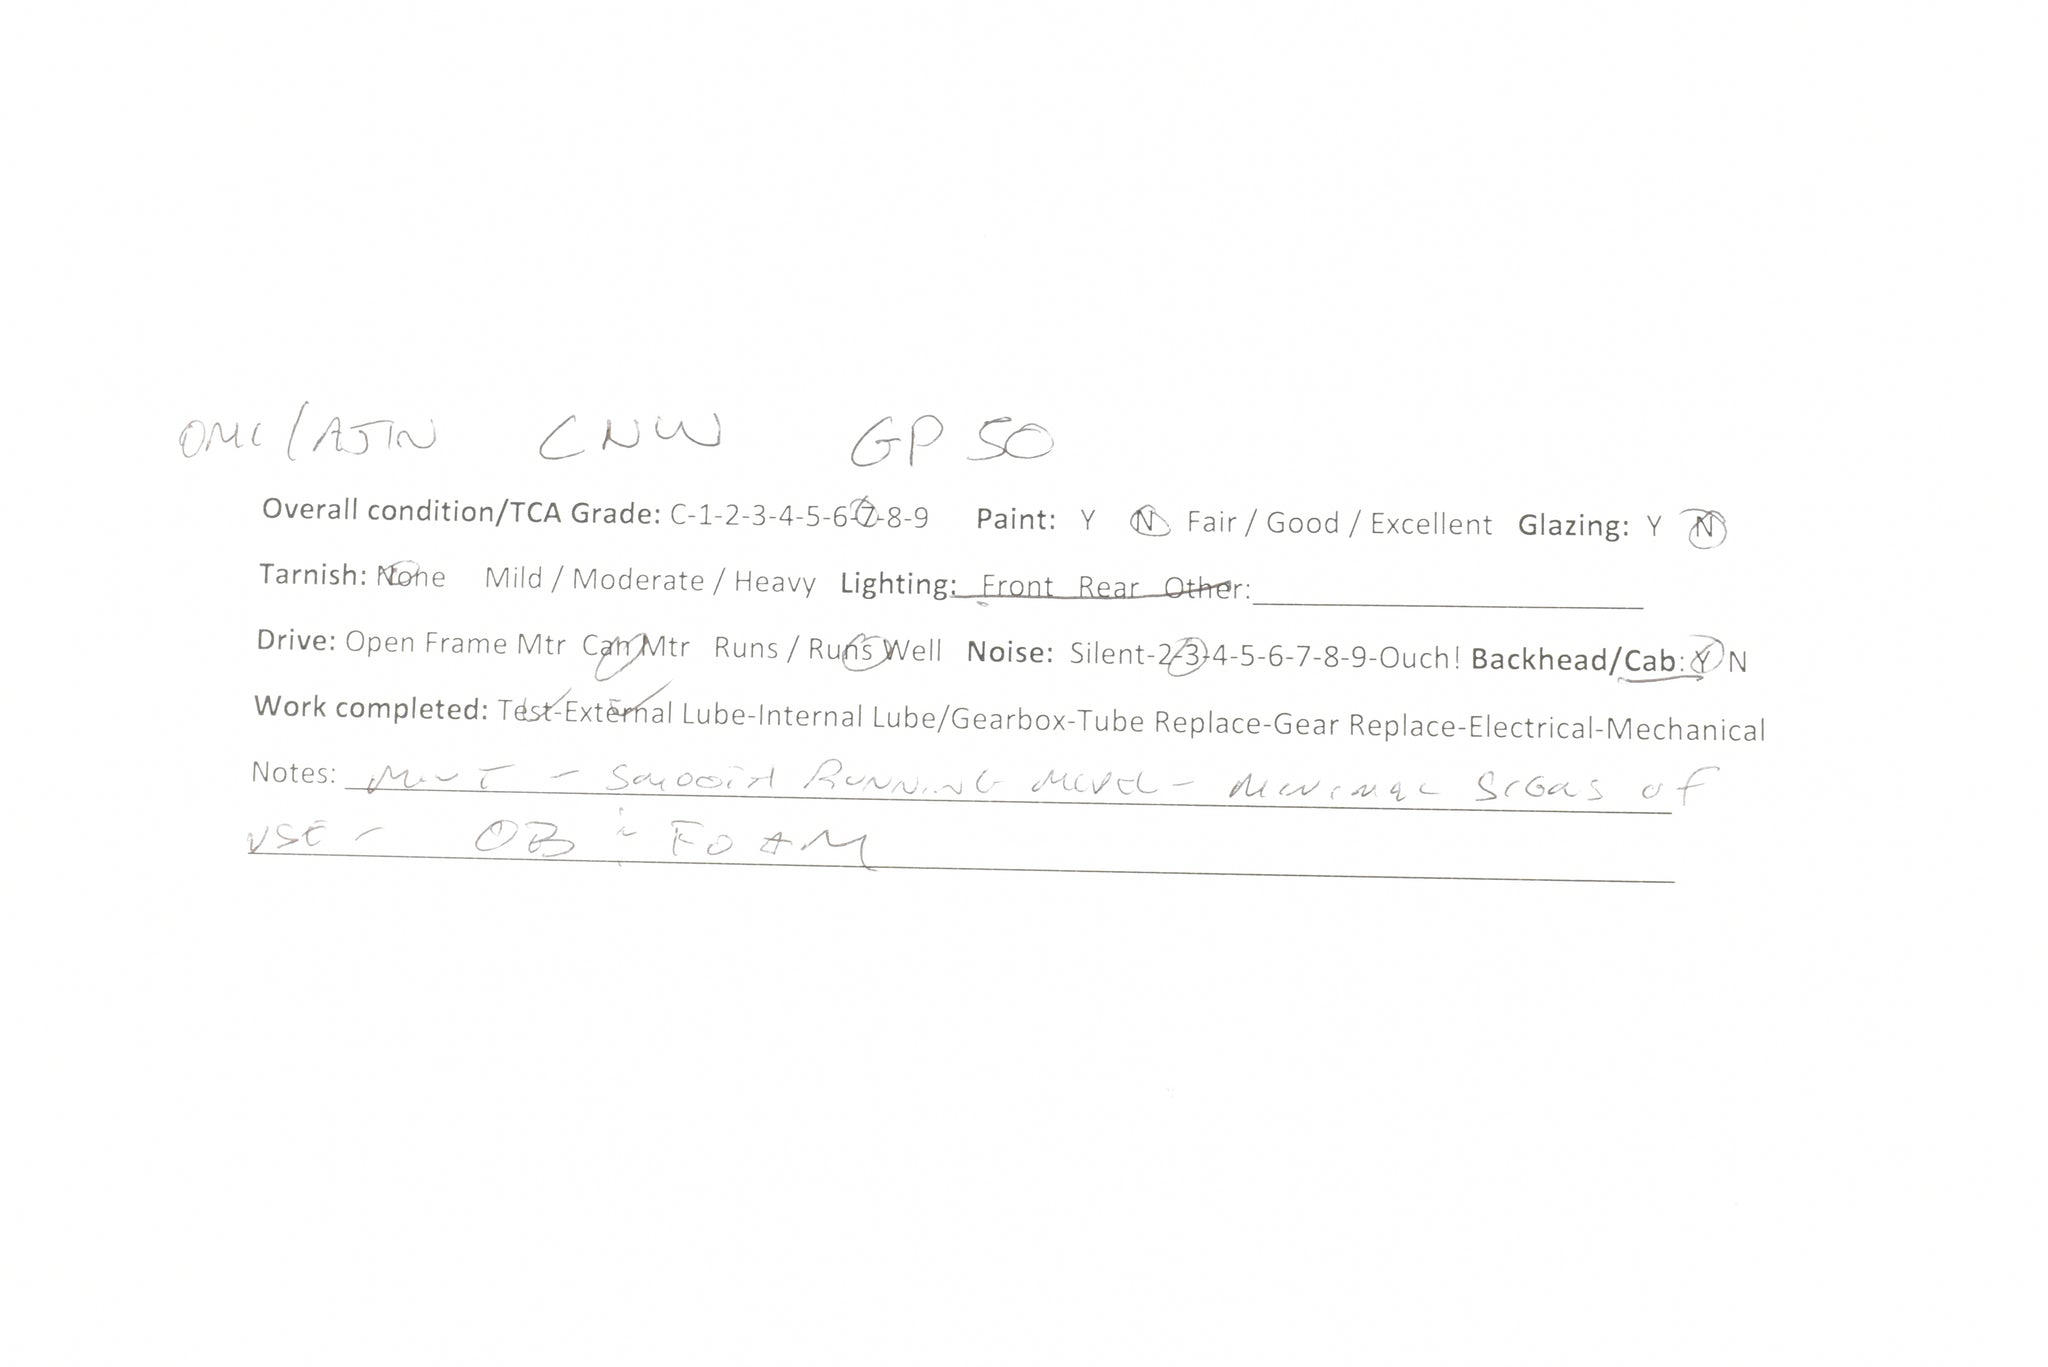 OMI/AJIN CNW GP 50
Overall condition/TCA Grade: C-1-2-3-4-5-6-7-8-9 Paint: Y N Fair / Good / Excellent Glazing: Y N
Tarnish: None Mild / Moderate / Heavy Lighting: Front Rear Other:
Drive: Open Frame Mtr Can Mtr Runs / Runs Well Noise: Silent-2-3-4-5-6-7-8-9-Ouch! Backhead/Cab: Y N
Work completed: Test-External Lube-Internal Lube/Gearbox-Tube Replace-Gear Replace-Electrical-Mechanical
Notes: MINT - SMOOTH RUNNING MODEL - MINIMAL SIGNS OF
USE - OB : FOAM